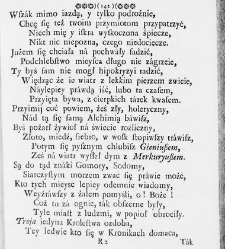 (131)
Wſzák mimo iazdą, y tylko podroźnie,
Chcę ſię teź twoim przymiotom przypatrzyć,
Niech mię y iſkra wyſkoczona ápiecze,
Nikt nie niepozna, czego niedociecze.
Juźem ſię chciała ná pochwały ſadzić,
Podchlebſtwo mieyſca długo nie zágrzeie,
Ty byś ſam nie mogł hipokryzyi radzić,
Wiedząc źe io wiatr z lekkim pierzem zwieie,
Náylepiey práwdą iść, lubo ta czaſem,
Przyięta bywa, z cierpkich tárek kwaſem.
Przyimiy coć powiem, źeś zły, holeryczny,
Nád tą ſię ſamą Alchimią báwiſz,
Byś pożarł żywioł ná świecie rozliczny,
Złoto, miedź, ſrebro, w woſk ſtopiwſzy tráwiſz,
Potym ſię pyſznym chlubiſz Genіuſzem,
Ześ ná wiatr wyſzł dym z Merkuryuſzem.
Są do tąd znáki Gomory, Sodomy,
Siarczyſtym morzem zwać ſię práwie moźe,
Kto tych mieyſc lepiey odemnie wiadomy,
Weyźrawſzy z żalem pomyśli, o! Boże!
Coż ni zá ognie, ták obſzerne były,
Tyle miaſt z ludzmi, w popioł obrociły.
Troja iedyna Kroleſtwa ozdoba,
Tey ledwie kto ſię w Kronikach domaca,
R 2 Ták